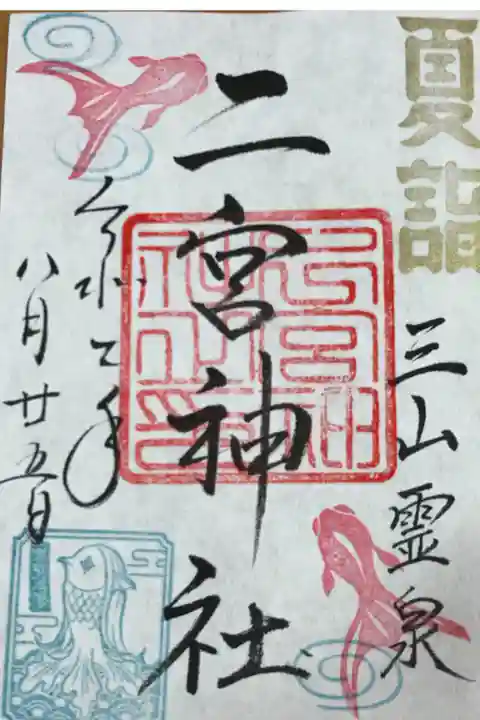 夏詣
三山霊泉
二宮神社
令和二年
八月廿五日